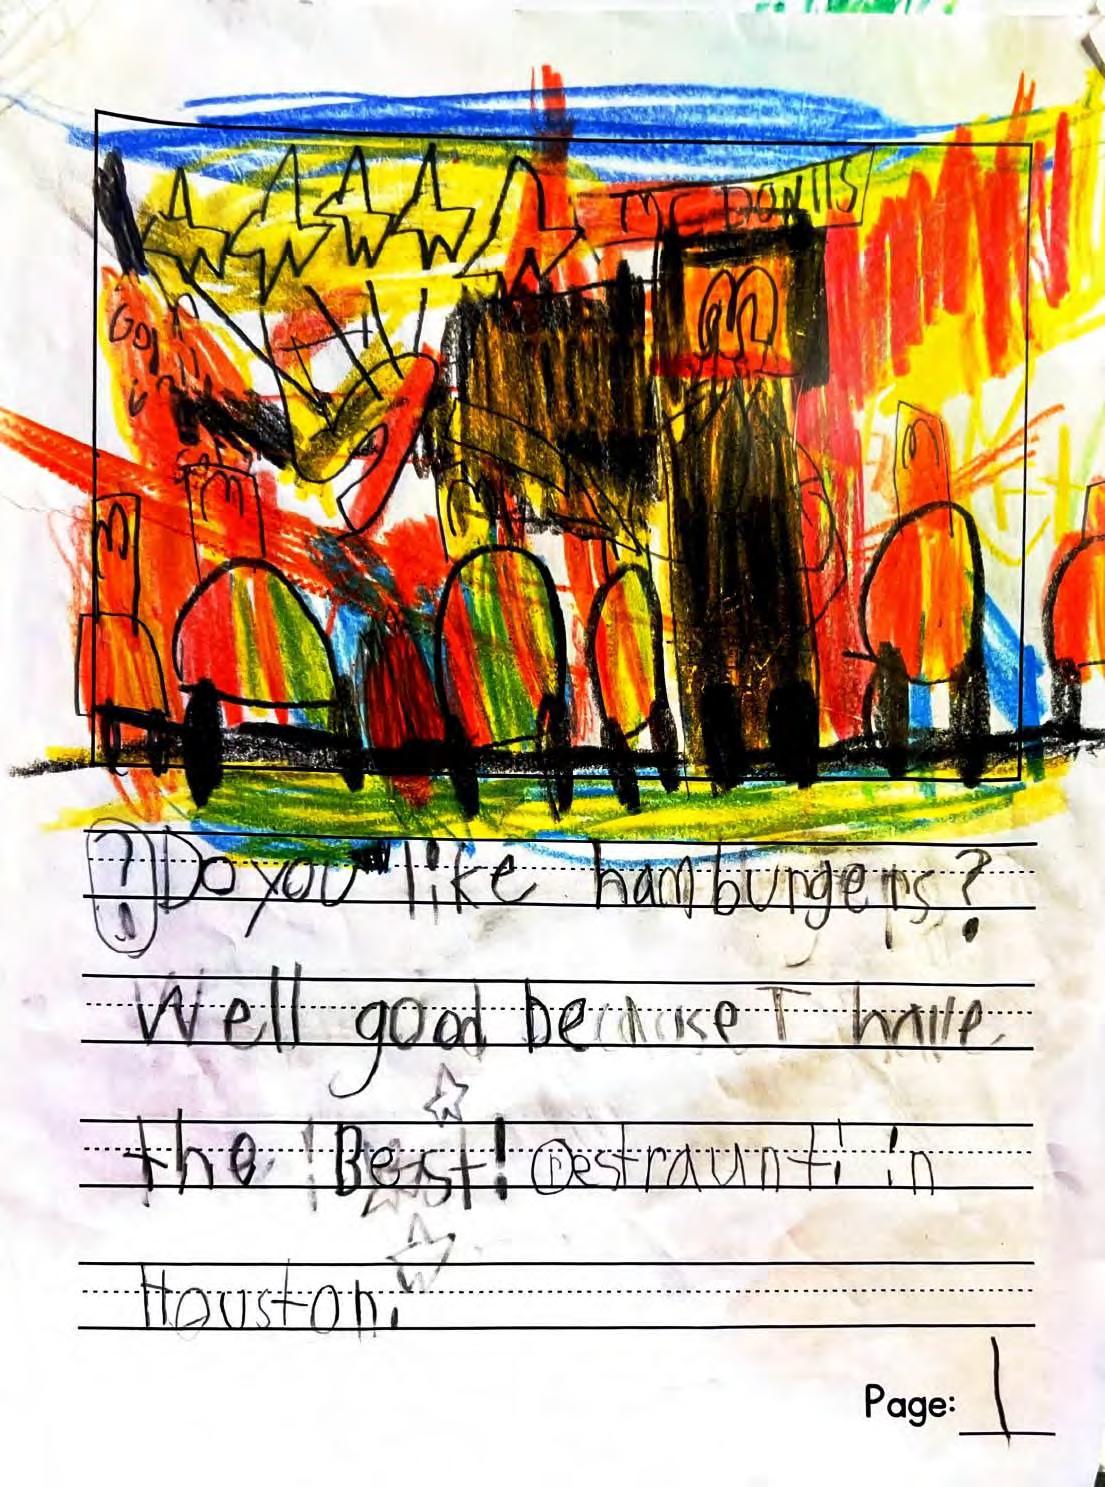 Mc DONllS
m
Go
in
m
m
m
m
? Do you like hamburgers?
!
Well good because I have
the ! Best! restraunti in
Houston.
Page: 1